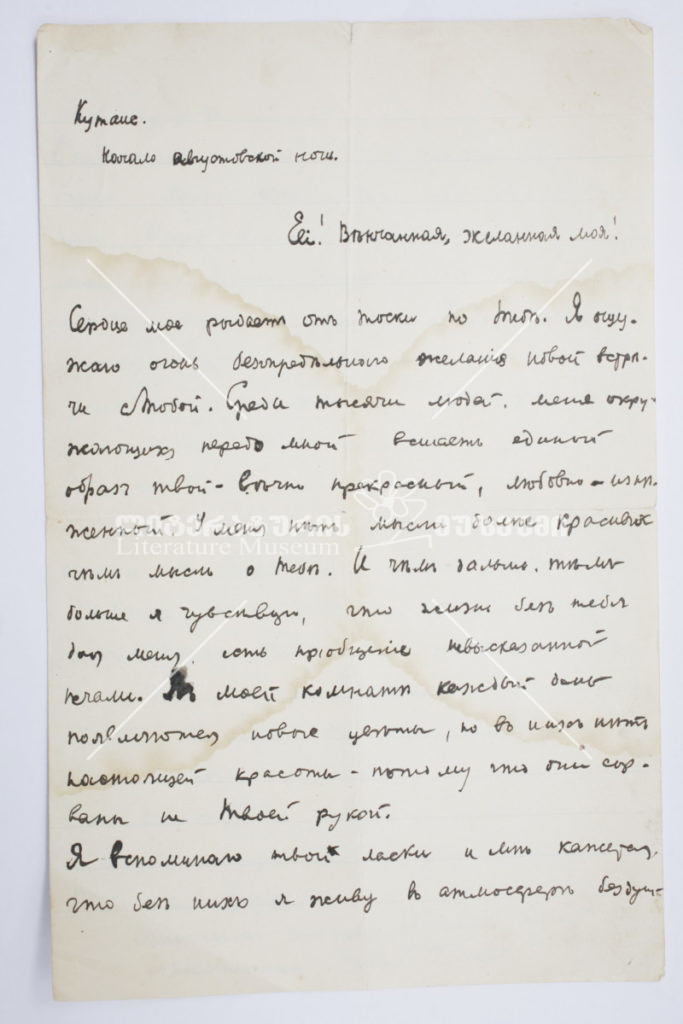 Кутаис.
Начало августовской ночи.
Ей! Вѣнчанная, желанная моя!
Сердце мое рыдаетъ отъ тоски по тебѣ. Я ощу-
жаю огонь безпредѣльного желанія новой встрѣ-
чи с Тобой. Среди тысячи людей, меня окру-
жающихъ передо мной встаетъ единый
образъ твой - вѣчно прекрасный, любовно - изнѣ-
женный. У меня нѣтъ мысли болѣе красивой
ლიტერატურის მუზეუმი
Literature Museum
чѣмъ мысль о тебѣ. И чѣмъ дальше, тѣмъ
больше я чувствую, что жизнь безъ тебя
для меня есть пріобщеніе невысказанной
печали. Въ моей комнатѣ каждый день
появляются новые цвѣты, но въ нихъ нѣтъ
настоящей красоты - потому что они сор-
ваны не Твоей рукой.
Я вспоминаю твои ласки и мнѣ кажется,
что безъ нихъ я живу въ атмосферѣ бездуш-